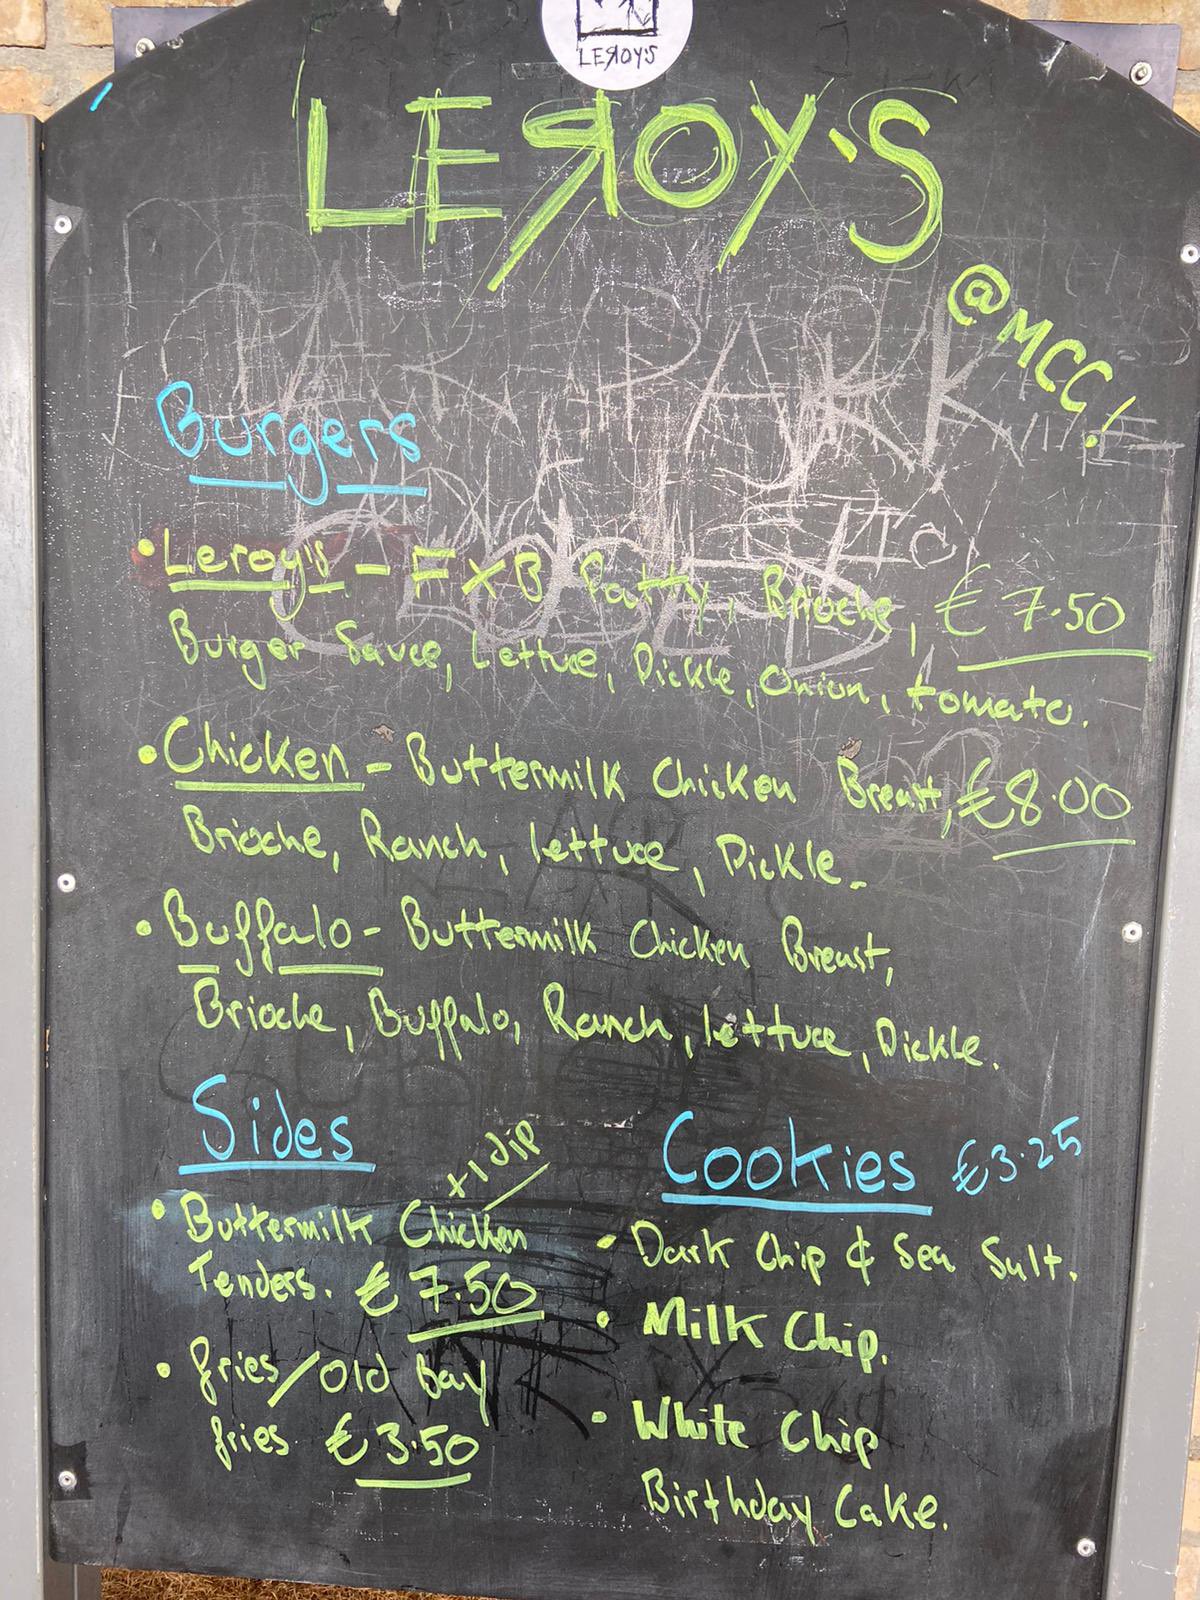 LEROY'S
LEROY'S
@MCC!
Burgers
• Leroy's - FXB Patty, Brioche, € 7.50
Burger Sauce, Lettuce, Pickle, Onion, tomato.
• Chicken - Buttermilk Chicken Breast, €8.00
Brioche, Ranch, lettuce, Pickle.
• Buffalo - Buttermilk Chicken Breast,
Brioche, Buffalo, Ranch, lettuce, Pickle.
Sides
+1 dip
• Buttermilk Chicken
Tenders. € 7.50
• fries/Old Bay
fries € 3.50
Cookies €3.25
• Dark Chip & Sea Salt.
• Milk Chip.
• White Chip
Birthday Cake.